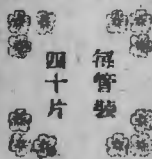 每管裝
四十片